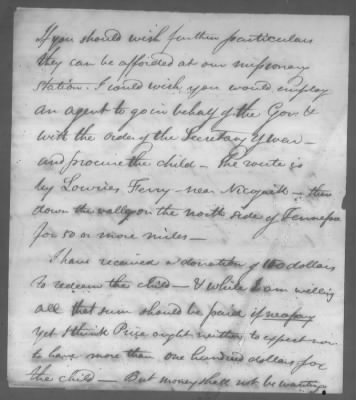 If you should wish further particulars
they can be afforded at our missionary
station. I could wish you would employ
an agent to go in behalf of the Gov. &
with the order of the Secretary of War —
and procure the child — The route is
by Lowries Ferry — near Nicojack — then
down the valley on the north side of Tennessee
for 50 or more miles —
I have received a donation of 100 dollars
to redeem the child — & while I am willing
all that sum should be paid if necessary
yet I think Price ought neither to expect nor
to have more than one hundred dollars for
the child — But money shall not be wanting